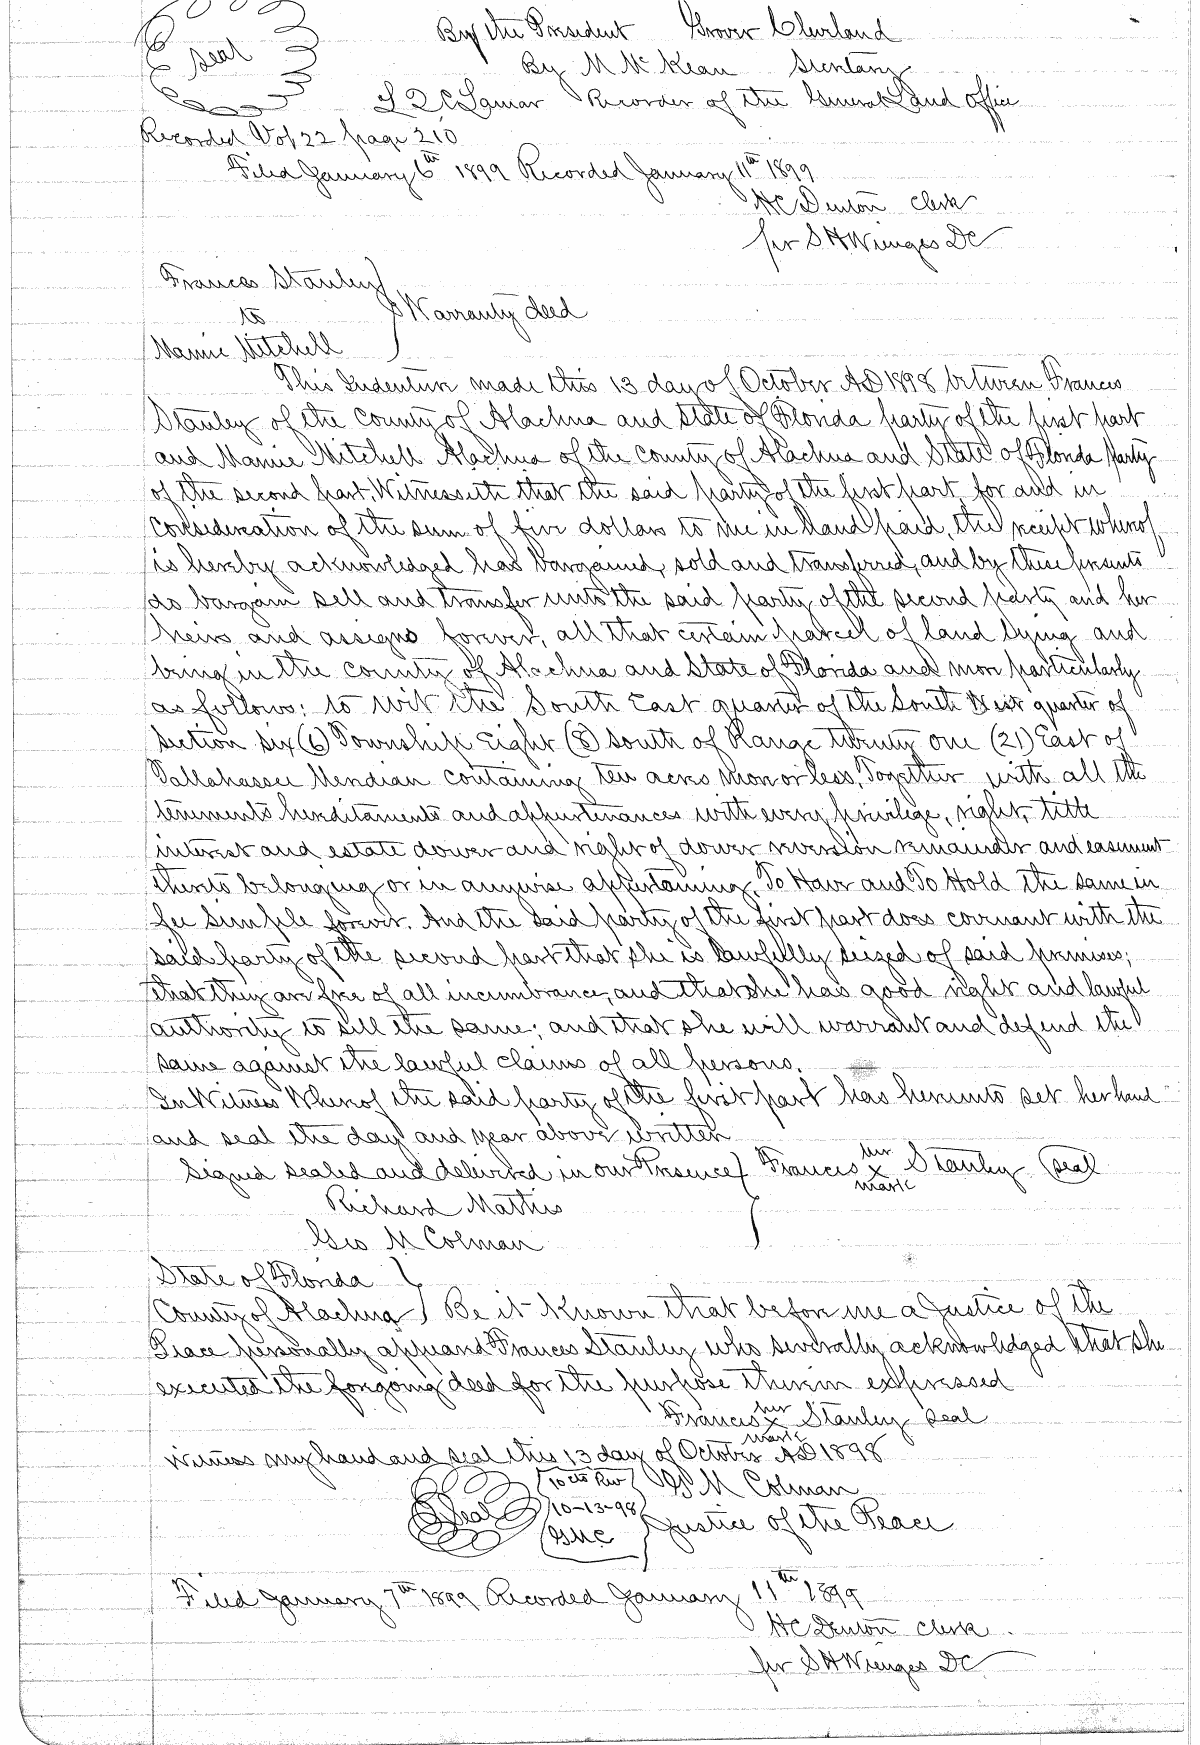 seal
By the President Grover Cleveland
By M McKean Secretary
L Q C Lamar Recorder of the General Land Office
Recorded Vol 22 page 210
Filed January 6th 1899 Recorded January 11th 1899
HC Denton Clerk
per S H Wienges DC
Frances Stanley
to
Warranty deed
Mamie Mitchell
This Indenture made this 13 day of October AD 1898 between Frances
Stanley of the County of Alachua and State of Florida party of the first part
and Mamie Mitchell Alachua of the County of Alachua and State of Florida party
of the second part, Witnesseth that the said party of the first part, for and in
consideration of the sum of five dollars to me in hand paid, the receipt whereof
is hereby acknowledged has bargained, sold and transferred, and by these presents
do bargain sell and transfer unto the said party of the second party and her
heirs and assigns forever, all that certain parcel of land lying and
being in the county of Alachua and State of Florida and more particularly
as follows: to wit the South East quarter of the South West quarter of
section six (6) Township Eight (8) South of Range twenty one (21) East of
Tallahassee Meridian containing ten acres more or less, Together with all the
tenements hereditaments and appurtenances with every privilege, right, title
interest and estate dower and right of dower reversion remainder and easement
thereto belonging or in anywise appertaining, To Have and To Hold the same in
fee simple forever. And the said party of the first part does covenant with the
said party of the second part that she is lawfully seized of said premises;
that they are free of all incumbrance, and that she has good right and lawful
authority to sell the same; and that she will warrant and defend the
same against the lawful claims of all persons.
In Witness Whereof the said party of the first part has hereunto set her hand
and seal the day and year above written
Signed sealed and delivered in our Presence Frances her x mark Stanley seal
Richard Mathis
Geo M Colman
State of Florida
County of Alachua Be it Known that before me a Justice of the
Peace personally appeared Frances Stanley who severally acknowledged that she
executed the forgoing deed for the purpose therein expressed
Frances her x mark Stanley seal
Witness my hand and seal this 13 day of October AD 1898
Seal 10 cts Rev G M Colman
10-13-98 Justice of the Peace
GMC
Filed January 7th 1899 Recorded January 11th 1899
HC Denton Clerk
per S H Wienges DC